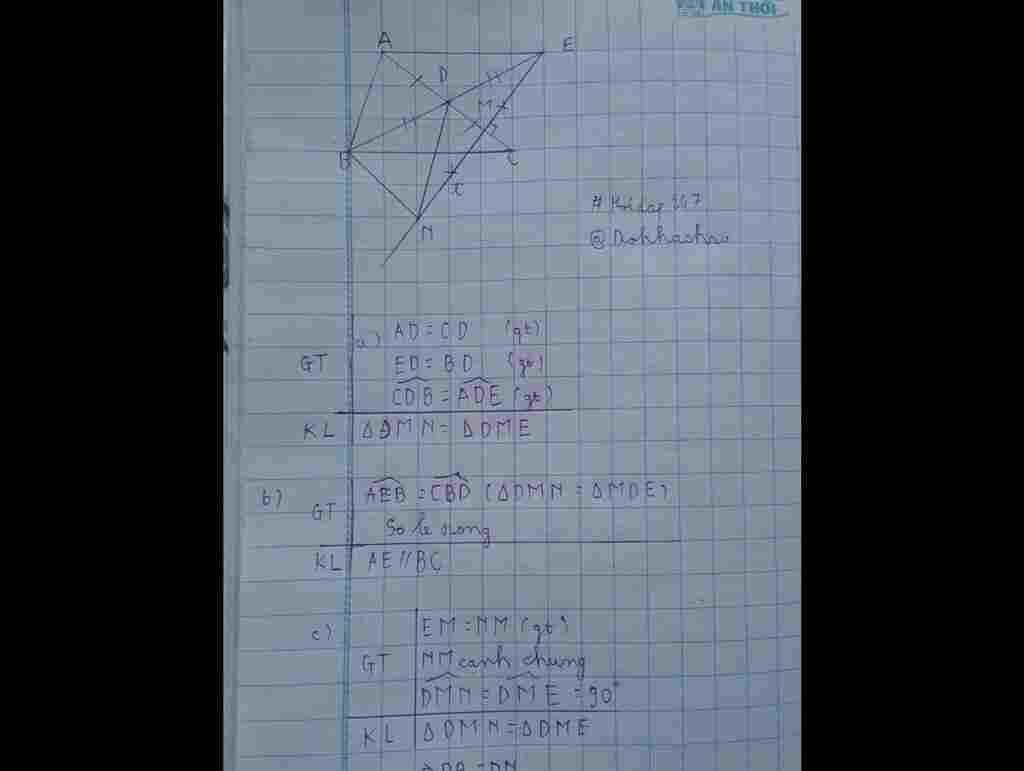 ÂN THỚI
A
E
D
M
B
C
x
N
GT
a) AD = CD (gt)
ED = BD (gt)
CDB = ADE (gt)
KL
Δ DMN = Δ DME
b)
GT
AEB = CBD (ΔDMN = ΔMDE)
So le trong
KL
AE // BC
c)
GT
EM = NM (gt)
NM cạnh chung
DMN = DME = 90°
KL
Δ DMN = Δ DME